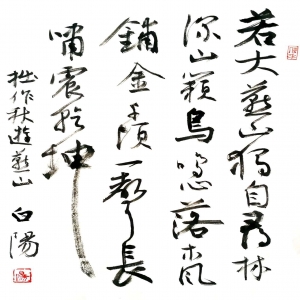 若大燕山獨自尋林
深山鳥鳴心落楓
鋪金千頃一聲長
嘯震乾坤
拙作秋遊燕山 白陽